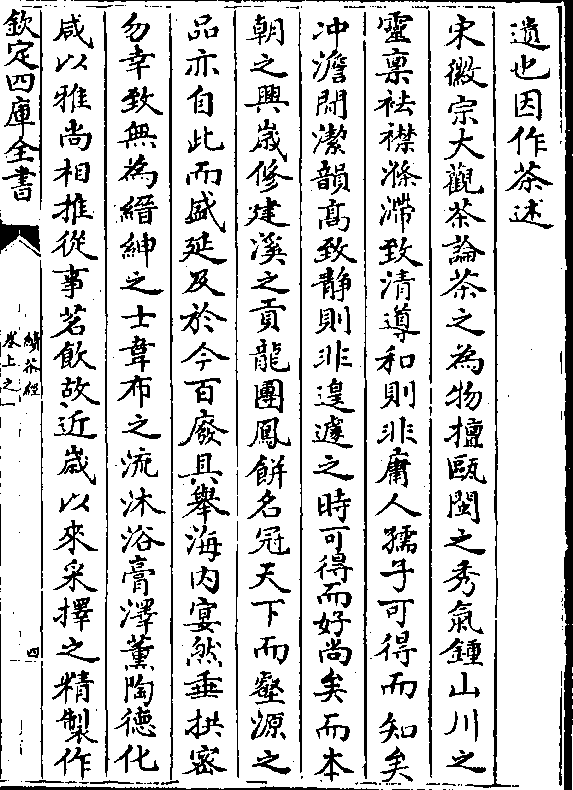 遺也因作茶述
宋徽宗大觀茶論茶之為物擅甌閩之秀氣鍾山川之
靈禀祛襟滌滯致清導和則非庸人孺子可得而知矣
冲澹閒潔韻髙致静則非遑遽之時可得而好尚矣而本
朝之興嵗修建溪之貢龍團鳳餅名冠天下而壑源之
品亦自此而盛延及於今百廢具舉海内宴然垂拱宻
勿幸致無為縉紳之士韋布之流沐浴膏澤薰陶德化
咸以雅尚相推從事茗飲故近嵗以來采擇之精製作
欽定四庫全書
續茶經
卷上之一
四